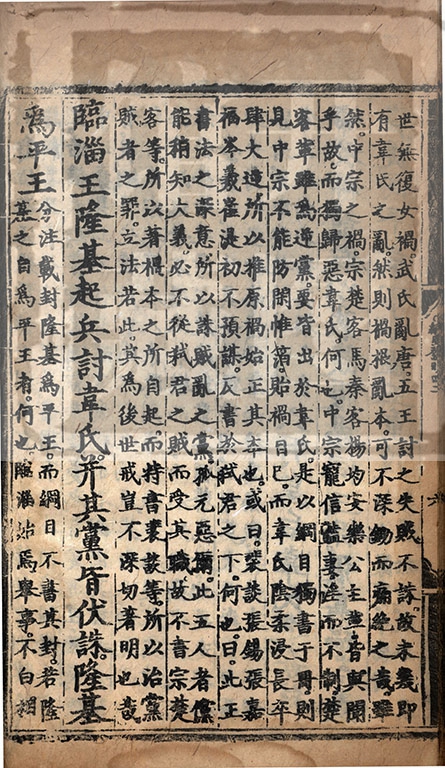 世無復女禍武氏亂唐五王討之失賊不誅故未幾即
有韋氏之亂然則禍根亂本可不深鋤而痛絶之哉雖
然中宗之禍宗楚客馬秦客楊均安樂公主葢皆與聞
乎故而獨歸惡韋氏何也中宗寵信妻淫而不制楚
客軰雖爲逆黨要皆出於韋氏是以綱目獨書于冊則
見中宗不能防閑惟箔貽禍自已而韋氏陰柔浸長卒
肆大逆所以推原禍始正其本也或曰裴談張錫張嘉
福岑羲崔湜初不預謀仄書於弑君之下何也曰此正
書法之深意所以誅賊亂之黨孤元惡爾此五人者儻
能稍知大義必不從弑君之賊而受其職故不書宗楚
客等所以著禍本之所自起而特書裴談等所以治黨
賊者之罪立法若此其爲後世戒豈不深切著明也哉
臨淄王隆基起兵討韋氏并其黨皆伏誅隆基
爲平王
分注載封隆基爲平王而綱目不書其封若隆
基之自爲平王者何也臨淄始焉舉事不白相